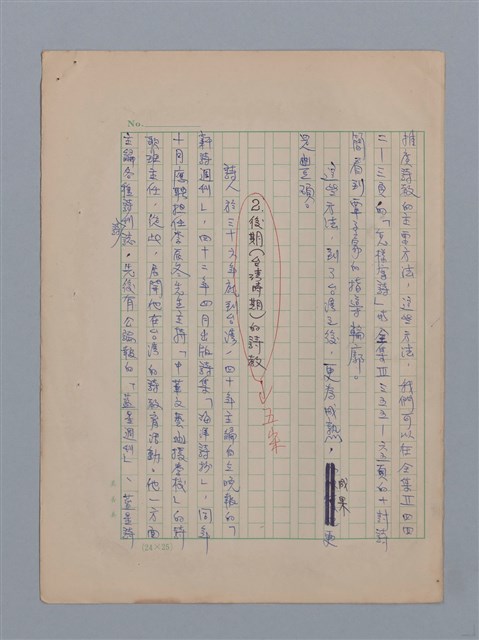 No.
推廣詩教的主要方法，這些方法，我們可以在全集Ⅱ四四
二－三頁的「怎樣寫詩」或全集Ⅱ三三二－六五頁的十封詩
簡看到覃子豪的指導輪廓。
這些方法，到了台灣之後，更為成熟，成果更
見豐碩。
2.後期（台灣時期）的詩教
五宋
詩人於三十六年就到台灣，四十年主編自立晚報的「
新詩週刊」，四十二年四月出版詩集「海洋詩抄」，同年
十月應聘担任李辰冬先生主持「中華文藝函授學校」的詩
歌班主任，從此，展開他在台灣的詩教育活動。他一方面
主編各種詩刊誌，先後有公論報的「藍星週刊」、藍星詩
(24×25)